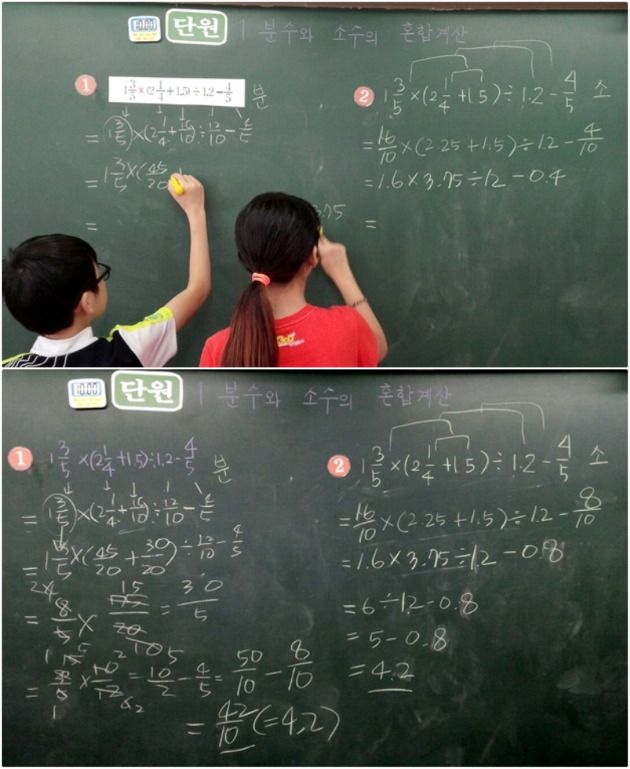 단원 1 분수와 소수의 혼합계산
1 1 3/5 × (2 1/4 + 1.5) ÷ 1.2 - 4/5 분
= 1 3/5 × (2 1/4 + 15/10) ÷ 12/10 - 4/5
= 1 3/5 × (45/20
=
3.75
2 1 3/5 × (2 1/4 + 1.5) ÷ 1.2 - 4/5 소
= 16/10 × (2.25 + 1.5) ÷ 1.2 - 4/10
= 1.6 × 3.75 ÷ 1.2 - 0.4
=
10:00 단원 1 분수와 소수의 혼합계산
1 1 3/5 × (2 1/4 + 1.5) ÷ 1.2 - 4/5 분
= 1 3/5 × (2 1/4 + 15/10) ÷ 12/10 - 4/5
= 1 3/5 × (45/20 + 30/20) ÷ 12/10 - 4/5
= 30/5
= 10/2 - 4/5 = 50/10 - 8/10
= 42/10 (= 4.2)
2 1 3/5 × (2 1/4 + 1.5) ÷ 1.2 - 4/5 소
= 16/10 × (2.25 + 1.5) ÷ 1.2 - 8/10
= 1.6 × 3.75 ÷ 1.2 - 0.8
= 6 ÷ 1.2 - 0.8
= 5 - 0.8
= 4.2